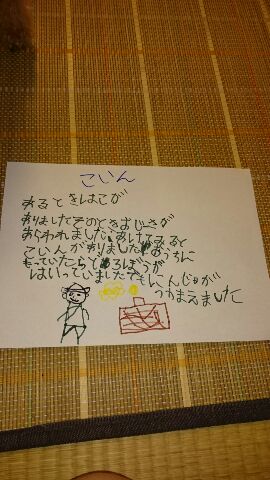 こいん
あるときはこが
ありましたそのときおじさが
あらわれましたあけてみると
こいんがありましたおうちに
もっていたらどろぼうが
はいっていましたでもにんじゃが
つかまえました